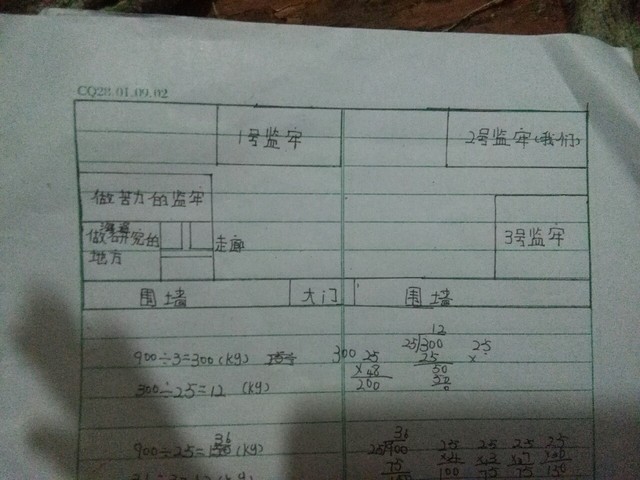 CQ28.01.09.02
1号监牢
2号监牢(我们)
做苦力的监牢
做研究的
地方
走廊
3号监牢
围墙
大门
围墙
900÷3=300(kg)
300÷25=12 (kg)
300
25
×48
200
12
25 300
25
50
50
0
25
×
900÷25=
36
(kg)
36
25 900
75
25
×4
100
25
×3
75
25
×7
75
25
150